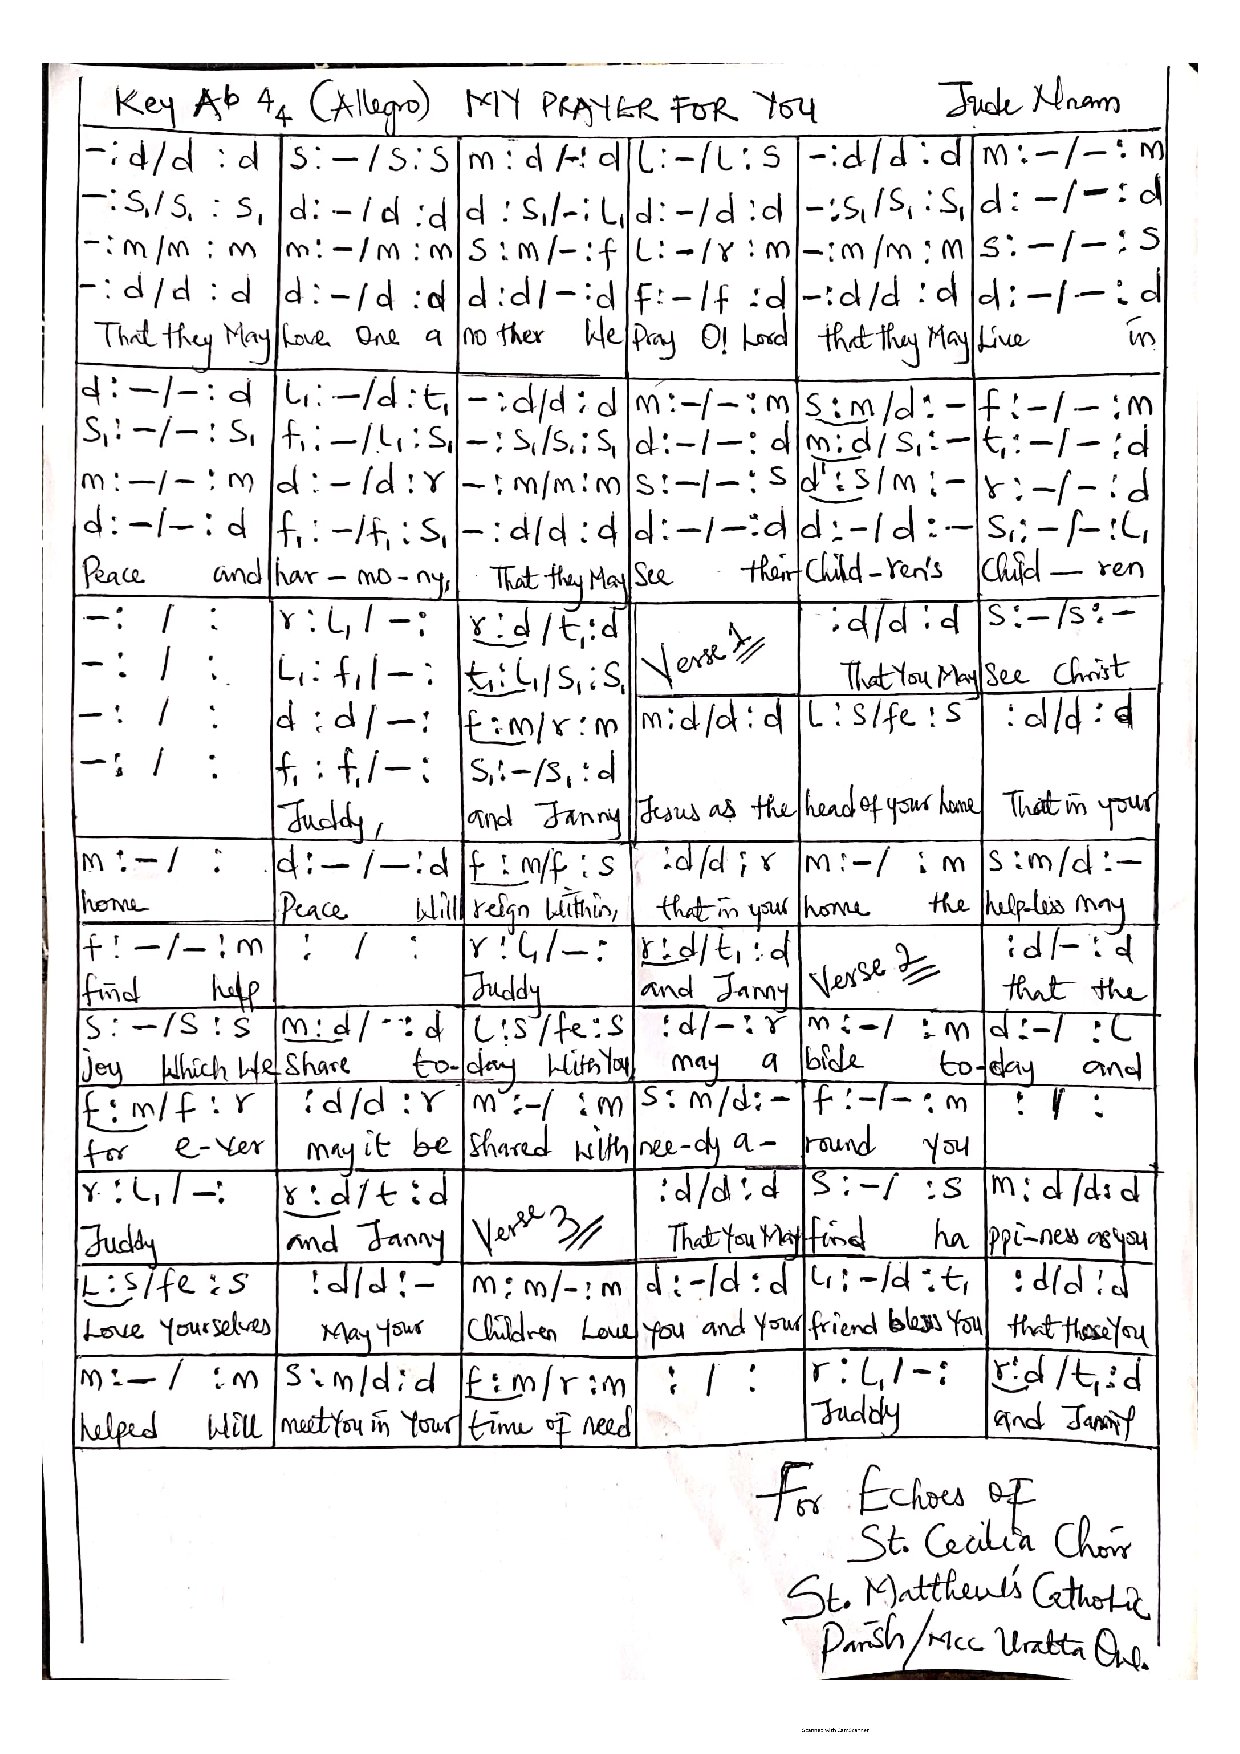 Key Ab 4/4 (Allegro) MY PRAYER FOR YOU Jude Nnam
-:d/d :d s:-/s:s m:d/-:d l:-/l:s -:d/d:d m:-/-:m
-:s₁/s₁ :s₁ d:-/d:d d:s₁/-:l₁ d:-/d:d -:s₁/s₁:s₁ d:-/-:d
-:m/m:m m:-/m:m s:m/-:f l:-/r:m -:m/m:m s:-/-:s
-:d/d:d d:-/d:d d:d/-:d f:-/f:d -:d/d:d d:-/-:d
That they May Love One a no ther We Pray O! Lord that they May Live in
d:-/-:d l₁:-/d:t₁ -:d/d:d m:-/-:m s:m/d:- f:-/-:m
s₁:-/-:s₁ f₁:-/l₁:s₁ -:s₁/s₁:s₁ d:-/-:d m:d/s₁:- t₁:-/-:d
m:-/-:m d:-/d:r -:m/m:m s:-/-:s d':s/m:- r:-/-:d
d:-/-:d f₁:-/f₁:s₁ -:d/d:d d:-/-:d d:-/d:- s₁:-/-:l₁
Peace and har-mo-ny, That they May See their Child-ren's Child-ren
-: / : r:l₁/-: r:d/t₁:d Verse 1 :d/d:d s:-/s:-
-: / : l₁:f₁/-: t₁:l₁/s₁:s₁ That You May See Christ
-: / : d:d/-: f:m/r:m m:d/d:d l:s/fe:s :d/d:d
-: / : f₁:f₁/-: s₁:-/s₁:d
Juddy, and Janny Jesus as the head of your home That in your
m:-/ : d:-/-:d f:m/f:s :d/d:r m:-/ :m s:m/d:-
home Peace Will reign Within, that in your home the help-less may
f:-/-:m : / : r:l₁/-: r:d/t₁:d Verse 2 :d/-:d
find help Juddy and Janny that the
s:-/s:s m:d/-:d l:s/fe:s :d/-:r m:-/ :m d:-/ :l
joy Which We Share to-day With You may a bide to-day and
f:m/f:r :d/d:r m:-/ :m s:m/d:- f:-/-:m : / :
for e-ver may it be Shared With nee-dy a- round you
r:l₁/-: r:d/t:d Verse 3 :d/d:d s:-/ :s m:d/d:d
Juddy and Janny That You May find ha ppi-ness as you
l:s/fe:s :d/d:- m:m/-:m d:-/d:d l₁:-/d:t₁ :d/d:d
Love Yourselves May Your Children Love You and Your friend bless You that those You
m:-/ :m s:m/d:d f:m/r:m : / : r:l₁/-: r:d/t₁:d
helped Will meet You in Your time of need Juddy and Janny
For Echoes of
St. Cecilia Choir
St. Matthew's Catholic
Parish/Mcc Uratta Ow.
Scanned with CamScanner